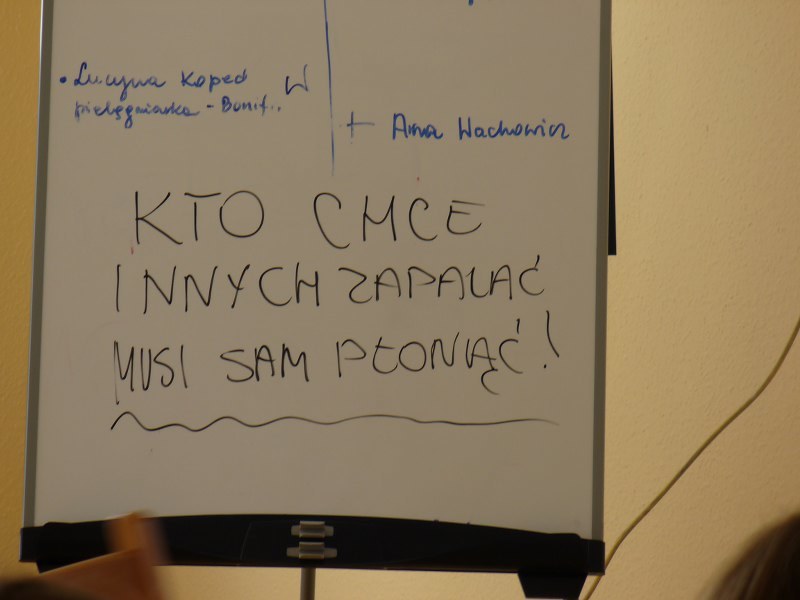 • Lucyna Kopeć W
pielęgniarka - Bonif..
+ Anna Wachowicz
KTO CHCE
INNYCH ZAPALAĆ
MUSI SAM PŁONĄĆ!